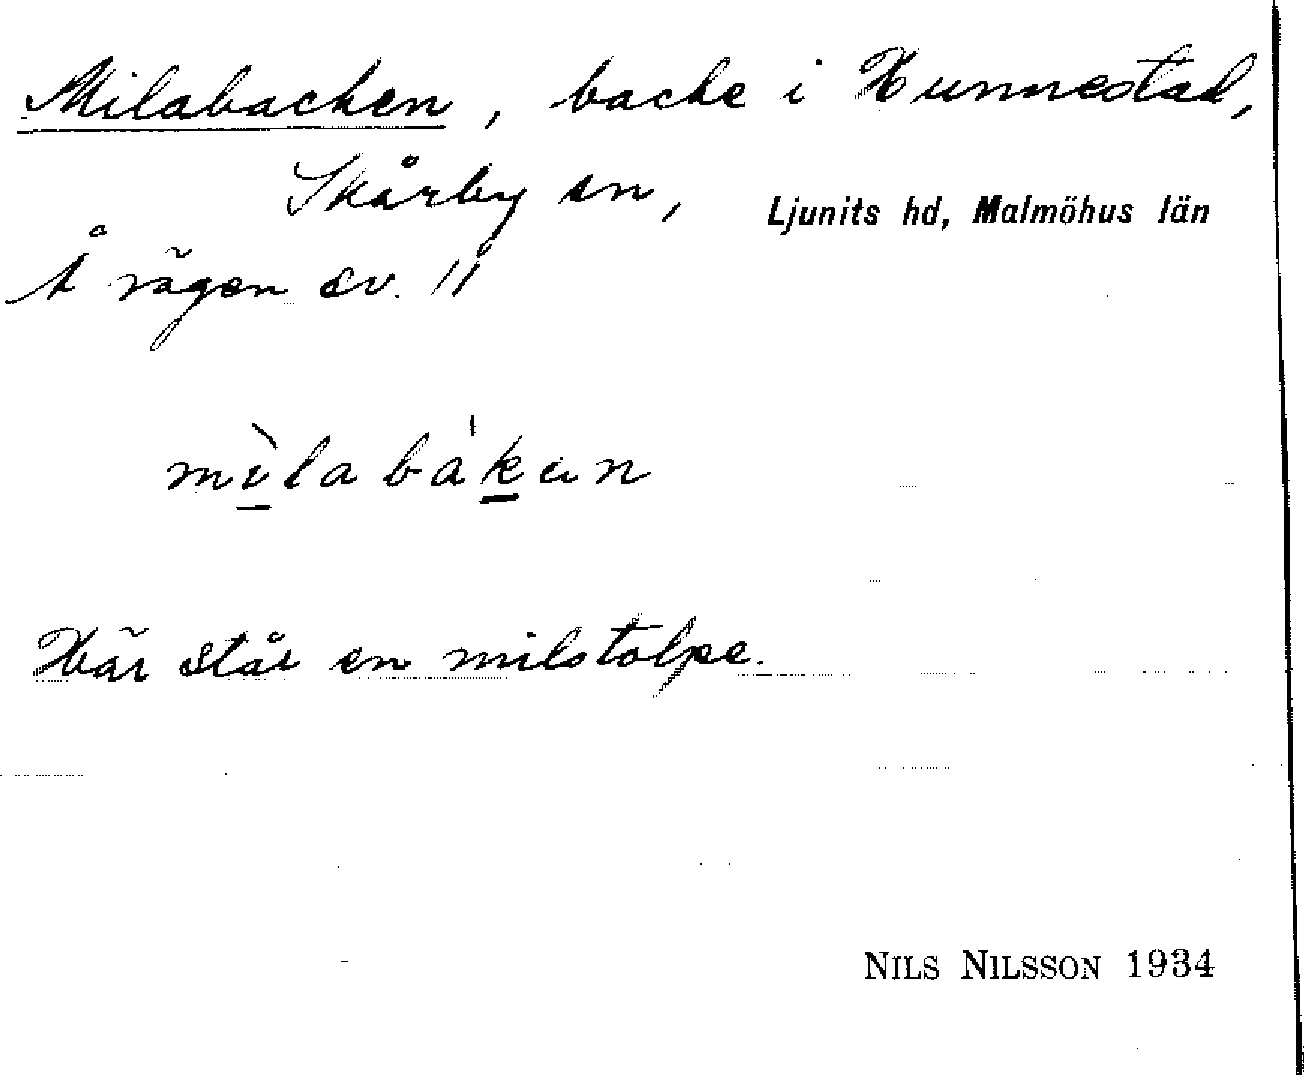 Milabacken, backe i Hunnestad,
Skårby sn, Ljunits hd, Malmöhus län
Å vägen sv. 11
mìlabakan
Här står en milstolpe.
NILS NILSSON 1934